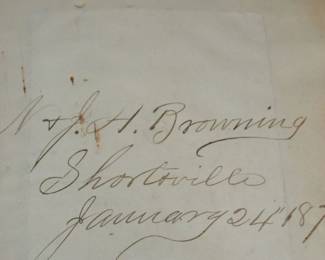 N & J. H. Browning
Shortsville
January 24" 187